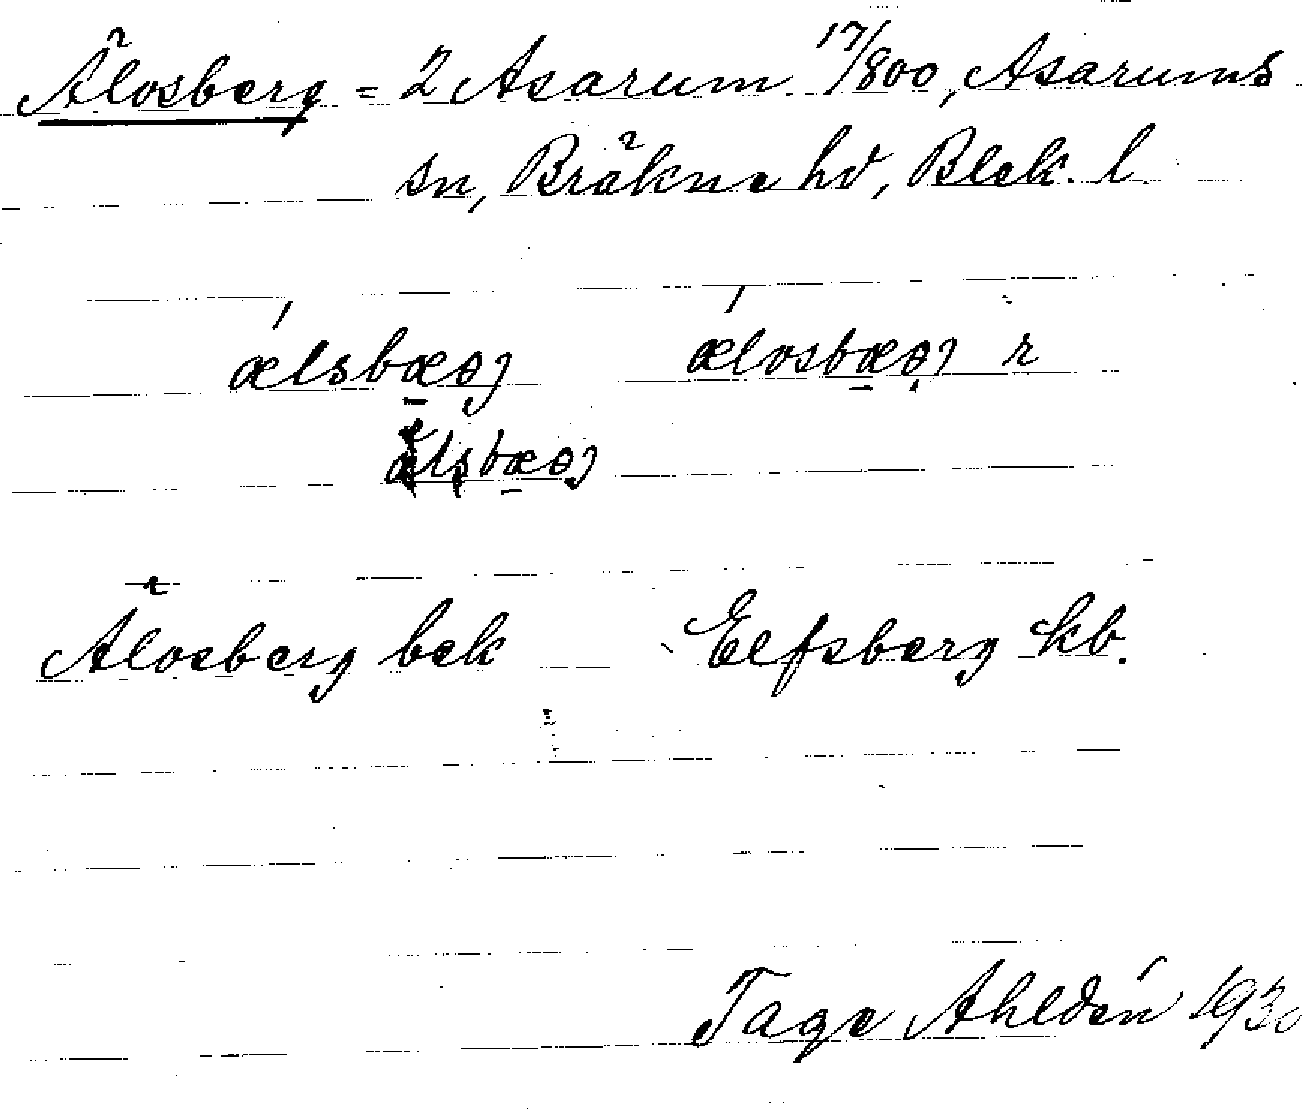 Älosberg = 2 Asarum 17/800, Asarums
sn, Bräkne hd, Blek. l.
ælsbæəj ælosbæəj r
ælsbæəj
Älosberg bek Elfsberg kb.
Tage Ahldén 1930